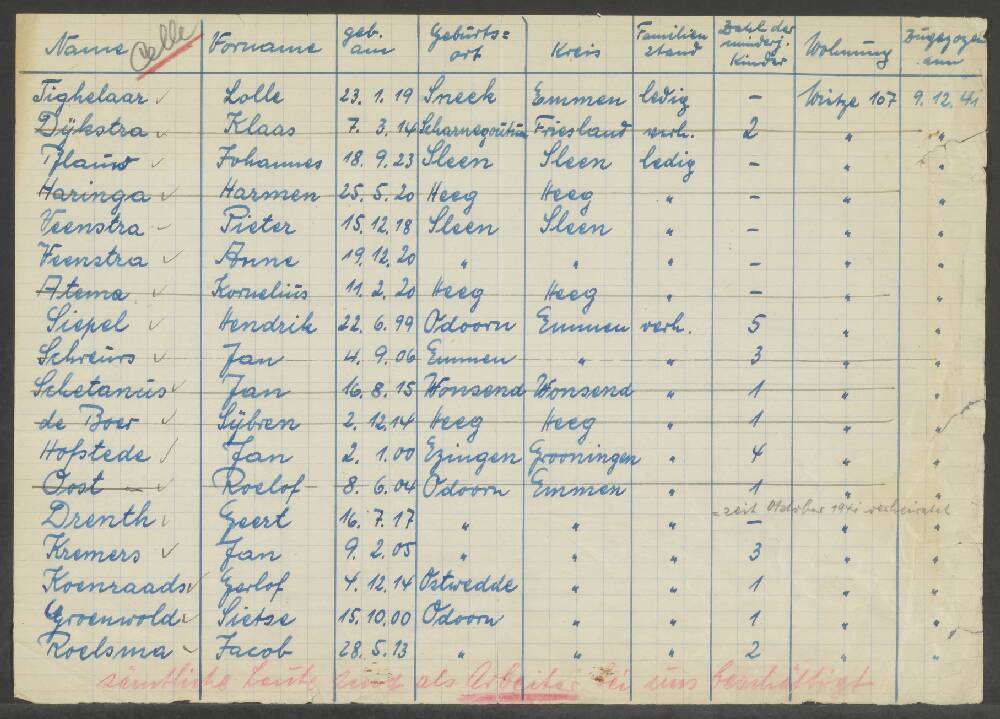 Name Celle Vorname geb. am Geburts= ort Kreis Familien stand Zahl der minderj. Kinder Wohnung Zugezogen am
Tighelaar Lolle 23.1.19 Sneek Emmen ledig – Wietze 107 9.12.41
Dÿkstra Klaas 7.3.14 Friesland verh. 2 " "
Blauw Johannes 18.9.23 Sleen Sleen ledig – " "
Haringa Harmen 25.5.20 Heeg Heeg " – " "
Veenstra Pieter 15.12.18 Sleen Sleen " – " "
Veenstra Anne 19.12.20 " " " – " "
Atema Kornelius 11.2.20 Heeg Heeg " – " "
Siepel Hendrik 22.6.99 Odoorn Emmen verh. 5 " "
Schreurs Jan 4.9.06 Emmen " " 3 " "
Schetanus Jan 16.8.15 Wonsend Wonsend " 1 " "
de Boer Sÿbren 2.12.14 Heeg Heeg " 1 " "
Hofstede Jan 2.1.00 Ezingen Grooningen " 4 " "
Oost Roelof 8.6.04 Odoorn Emmen " 1 " "
= seit Oktober 1941 verheiratet
Drenth Geert 16.7.17 " " " – " "
Kremers Jan 9.2.05 " " " 3 " "
Koenraads Gerlof 4.12.14 Ostwedde " " 1 " "
Groenwold Sietse 15.10.00 Odoorn " " 1 " "
Roelsma Jacob 28.5.13 " " " 2 " "
sämtliche Leute sind als Arbeiter bei uns beschäftigt